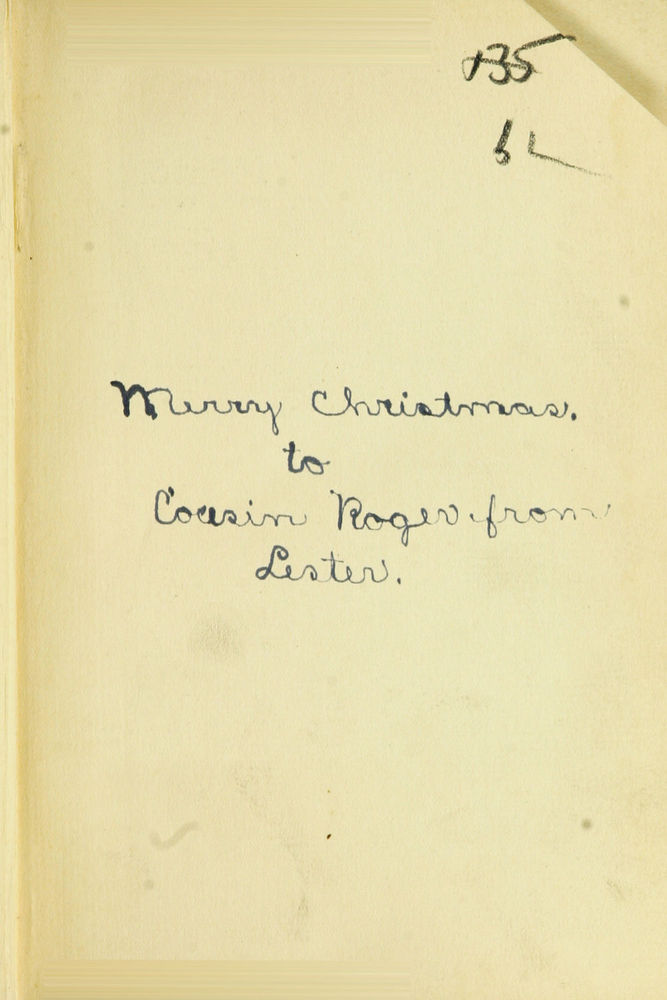 Merry Christmas.
to
Cousin Roger from
Lester.